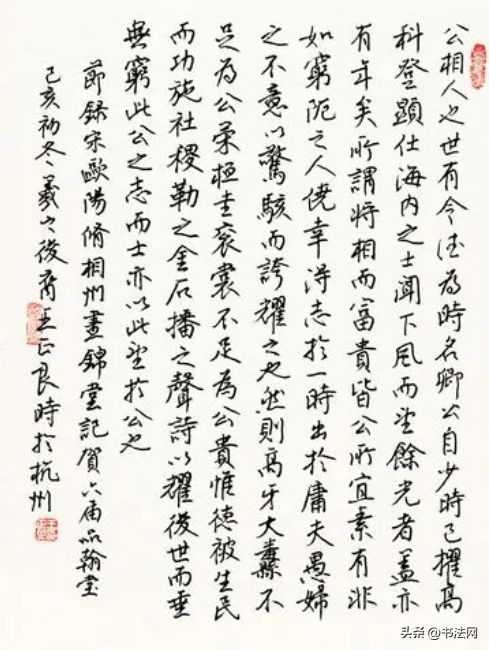 公相人也世有令德為時名卿公自少時已擢高
科登顯仕海内之士聞下風而望餘光者蓋亦
有年矣所謂將相而富貴皆公所宜素有非
如窮阨之人僥幸得志於一時出於庸夫愚婦
之不意以驚駭而誇耀之也然則高牙大纛不
足為公榮桓圭袞裳不足為公貴惟德被生民
而功施社稷勒之金石播之聲詩以耀後世而垂
無窮此公之志而士亦以此望於公也
節錄宋歐陽脩相州晝錦堂記賀六届品翰堂
己亥初冬羲之後裔王正良時於杭州
头条@书法网